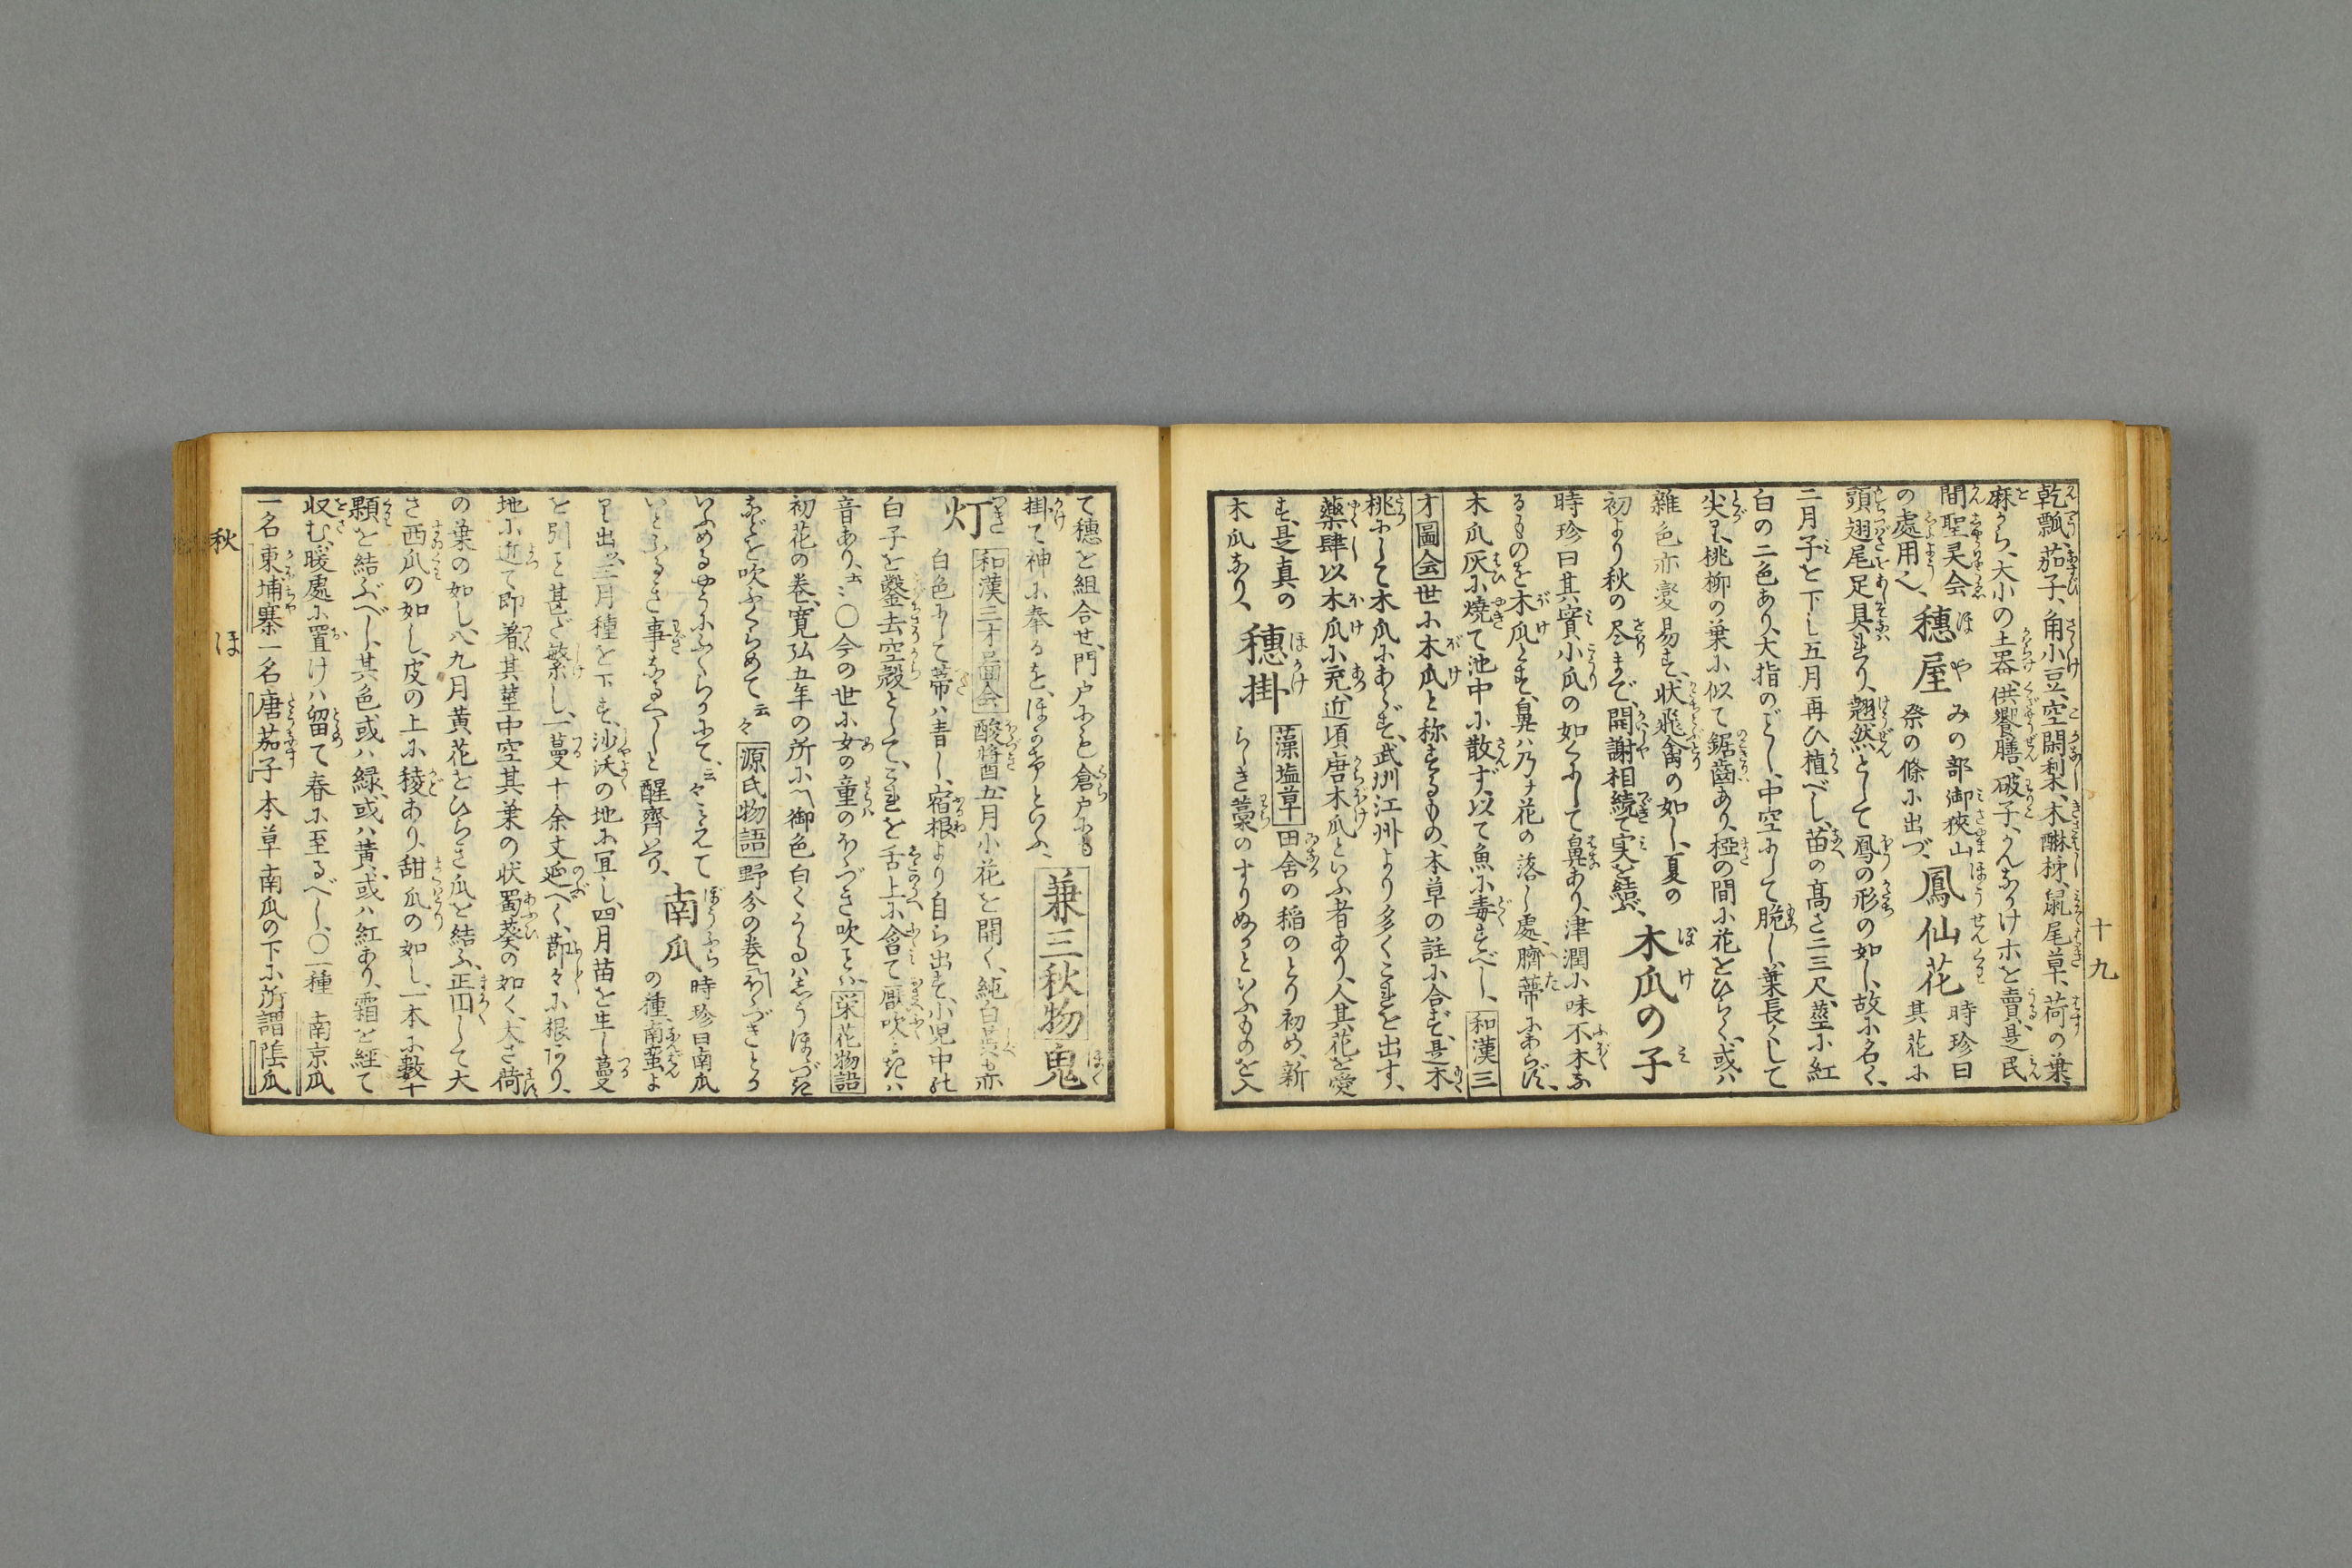 乾瓢、茄子、角小豆、空閑梨、木醂柹、鼠尾草、荷の葉、
麻から、大小の土器、供饗膳、破子、かんなかけホを賣、是民
間聖灵会
の處用人、穂屋 みの部御狹山
祭の條に出づ、鳳仙花 時珍曰
其花に
頭翅尾足具れり、翹然として鳳の形の如し、故に名く、
二月子を下し五月再ひ植べし、苗の髙さ二三尺、莖に紅
白の二色あり、大指のごとし、中空にして脆し、葉長くして
尖り、桃柳の葉に似て鋸齒あり、椏の間に花をひらく、或ハ
雜色亦変易す、状飛禽の如し、夏の
初より秋の尽まで、開謝相続て実を結ぶ、木瓜の子
時珍曰其實小瓜の如くにして鼻あり、津潤小味不木な
るものを木瓜とす、鼻ハ乃チ花の落し處、臍蒂にあらず、
木瓜灰に燒て池中に散ず、以て魚に毒すべし、和漢三
才圖会世に木瓜と称するもの、本草の註に合ず、是木
桃にして木瓜にあらず、武州江州より多くこれを出す、
藥肆以木瓜に充、近頃唐木瓜といふ者あり、人其花を愛
す、是真の
木瓜なり、穂掛 藻塩草田舎の稲のとり初め、新
らしき藁のすりぬかといふものを入
て穂を組合せ、門戸にも倉戸にも
掛て神に奉るを、ほかけといふ、兼三秋物 鬼
灯 和漢三才圖会酸醬五月小花を開く、純白蕋も亦
白色にして蒂ハ青し、宿根より自ら出づ、小児中の
白子を鑿去空殻として、これを舌上に含て壓吹ときハ
音あり、云々〇今の世に女の童のほゝづき吹とハ栄花物語
初花の巻、寛弘五年の所に、御色白くうるハしうほゝづき
などを吹ふくらめて云々 源氏物語野分の巻ほゝづきとか
いふめるやうにふくらかにて、云々みえて
いとふるき事なるべしと醒齊考り、南瓜 時珍曰南瓜
の種、南蛮よ
り出、三月種を下す、沙沃の地に宜し、四月苗を生し蔓
を引こと甚だ繁し、一蔓十余丈延べく、莭々に根あり、
地に近て即著、其莖中空其葉の状蜀葵の如く、大さ荷
の葉の如し、八九月黄花をひらき瓜を結ふ、正圓して大
さ西瓜の如し、皮の上に稜あり、甜瓜の如し、一本に數十
顆を結ぶべし、其色或ハ緑、或ハ黄、或ハ紅あり、霜を經て
収む、暖處に置けハ留て春に至るべし、〇一種 南京瓜
一名柬埔寨一名唐茄子本草南瓜の下に所謂陰瓜
十九
秋 ほ